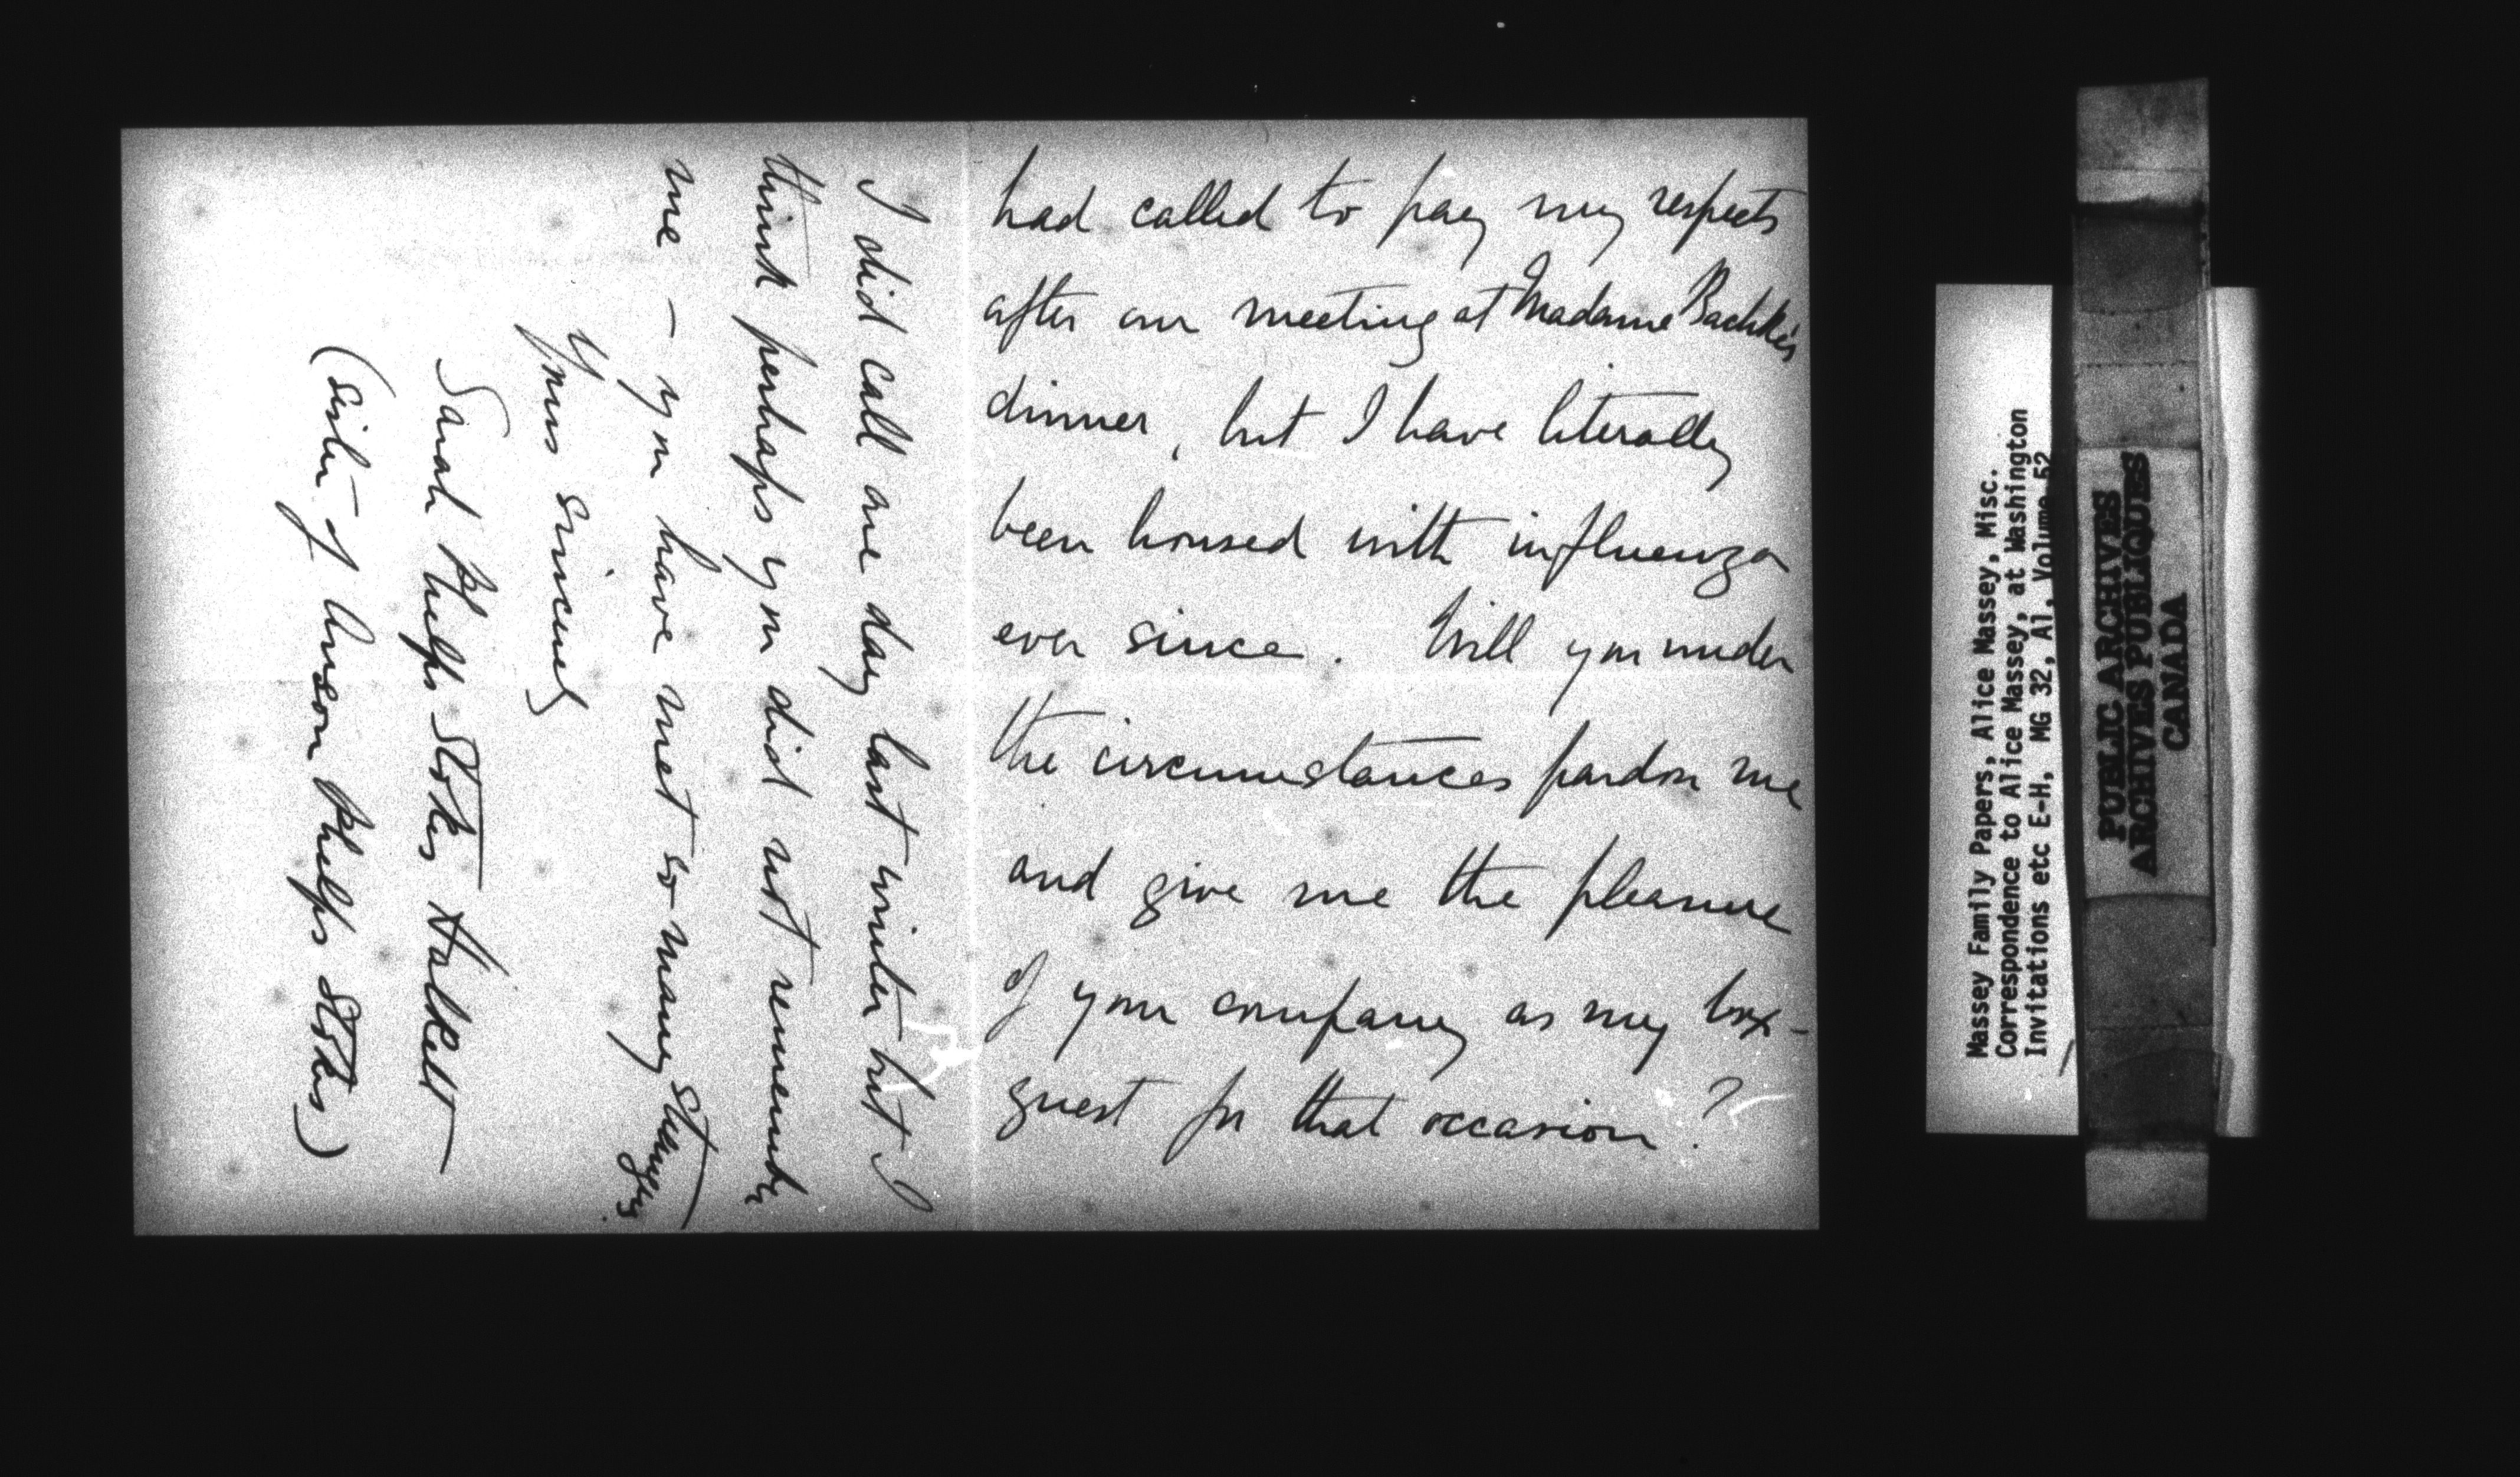 had called to pay my respects
after our meeting at Madame Bachke's
dinner, but I have literally
been housed with influenza
ever since. Will you under
the circumstances pardon me
and give me the pleasure
of your company as my box-
guest for that occasion?
I did call one day last winter but I
think perhaps you did not remember
me – you have met so many strangers.
Yours sincerely
Sarah Phelps Stokes Halkett
(sister of Anson Phelps Stokes)
Massey Family Papers, Alice Massey, Misc.
Correspondence to Alice Massey, at Washington
Invitations etc E-H, MG 32, A1, Volume 52
PUBLIC ARCHIVES
ARCHIVES PUBLIQUES
CANADA